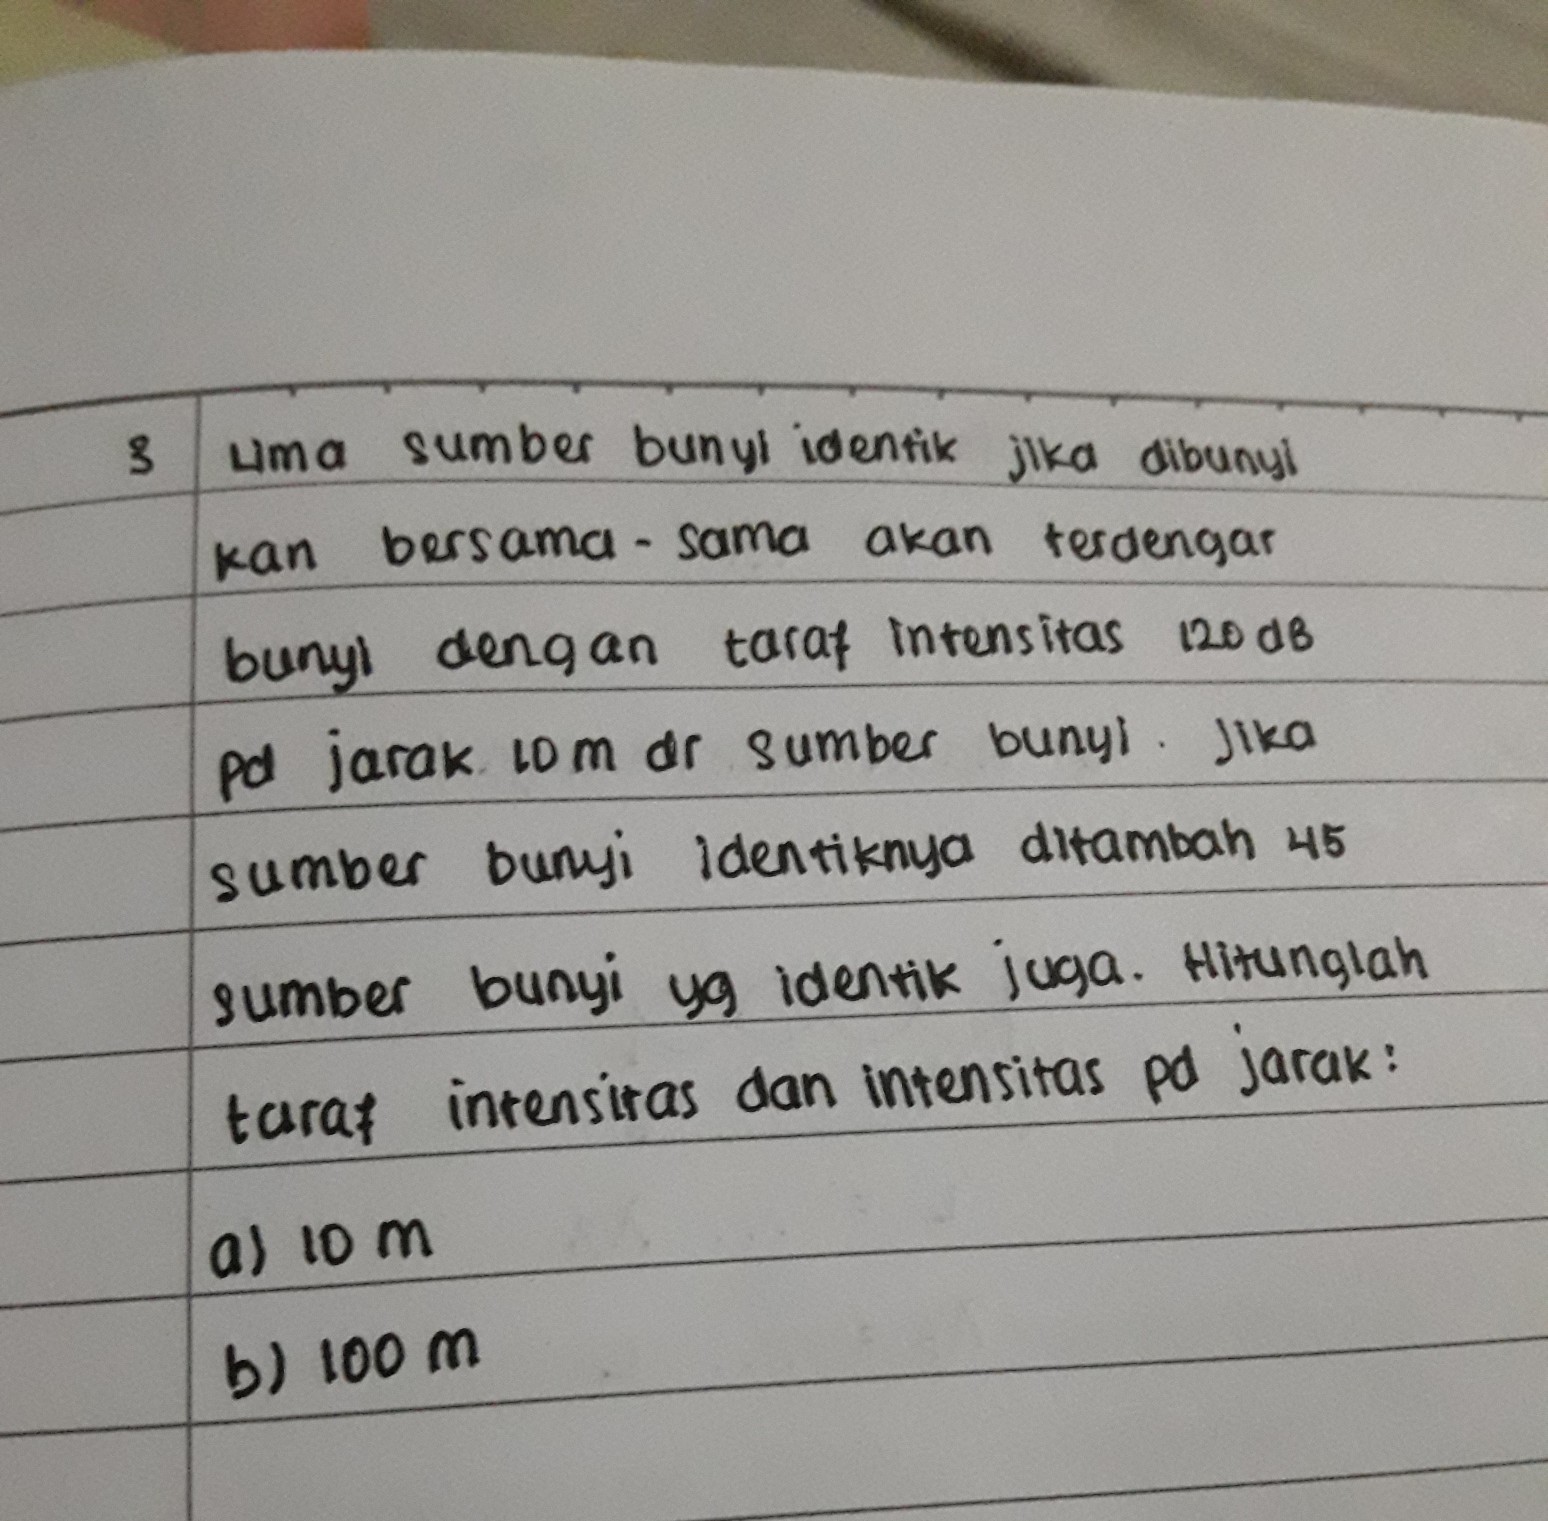 3 Lima sumber bunyi identik jika dibunyi
kan bersama - sama akan terdengar
bunyi dengan taraf intensitas 120 dB
pd jarak 10 m dr sumber bunyi. Jika
sumber bunyi identiknya ditambah 45
sumber bunyi yg identik juga. Hitunglah
taraf intensitas dan intensitas pd jarak:
a) 10 m
b) 100 m